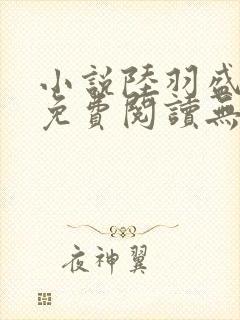 小說陸羽盛
免費閱讀無
夜神翼